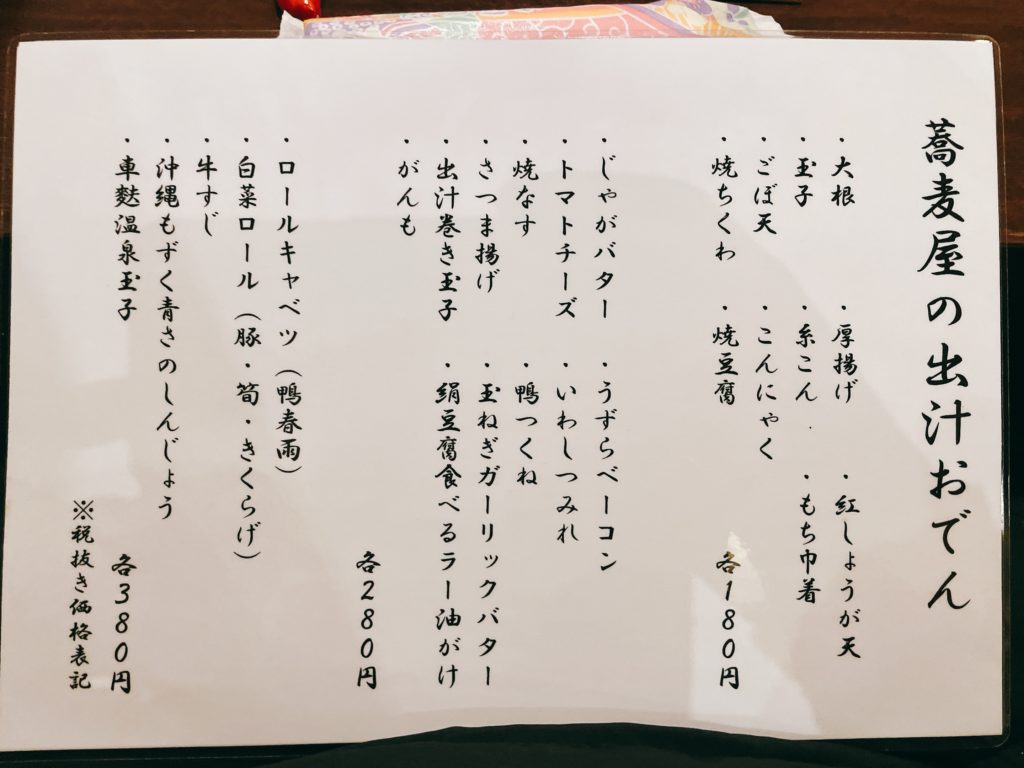 蕎麦屋の出汁おでん
・大根 ・厚揚げ ・紅しょうが天
・玉子 ・糸こん ・もち巾着
・ごぼ天 ・こんにゃく
・焼ちくわ ・焼豆腐 各180円
・じゃがバター ・うずらベーコン
・トマトチーズ ・いわしつみれ
・焼なす ・鴨つくね
・さつま揚げ ・玉ねぎガーリックバター
・出汁巻き玉子 ・絹豆腐食べるラー油がけ
・がんも
各280円
・ロールキャベツ（鴨春雨）
・白菜ロール（豚・筍・きくらげ）
・牛すじ
・沖縄もずく青さのしんじょう
・車麩温泉玉子 各380円
※税抜き価格表記